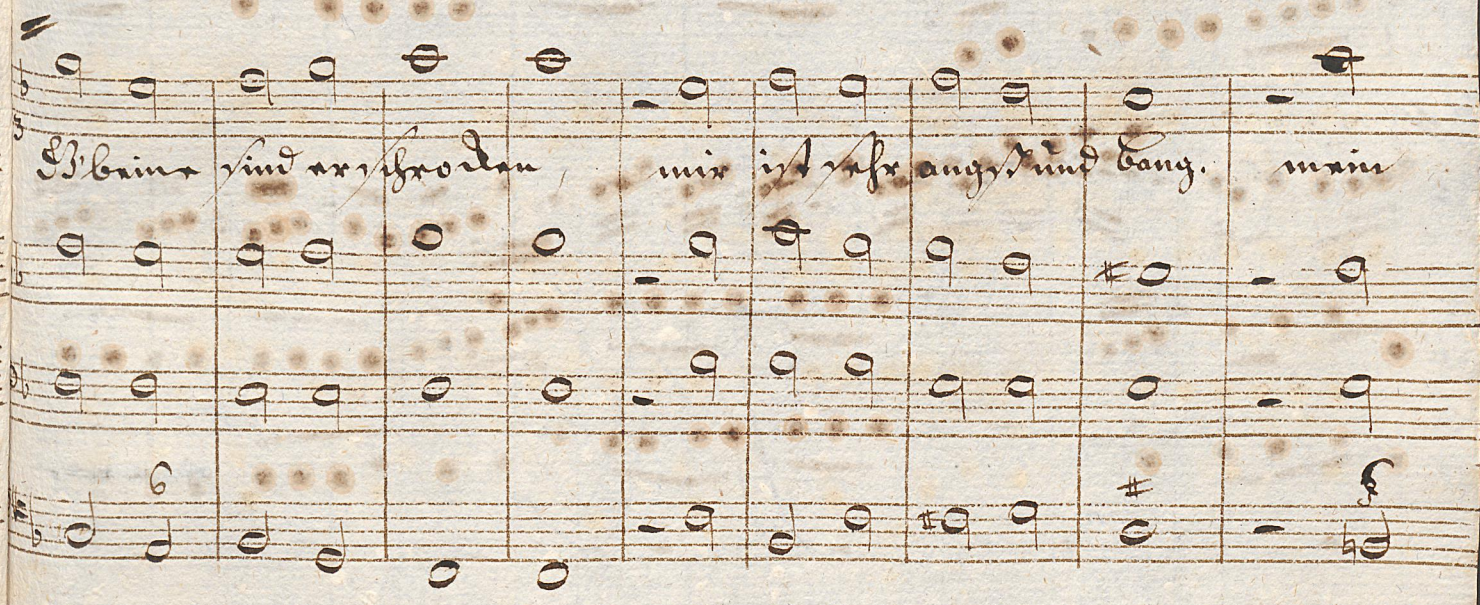 Gbeine sind erschrocken, mir ist sehr angst und bang. mein
6
# 6